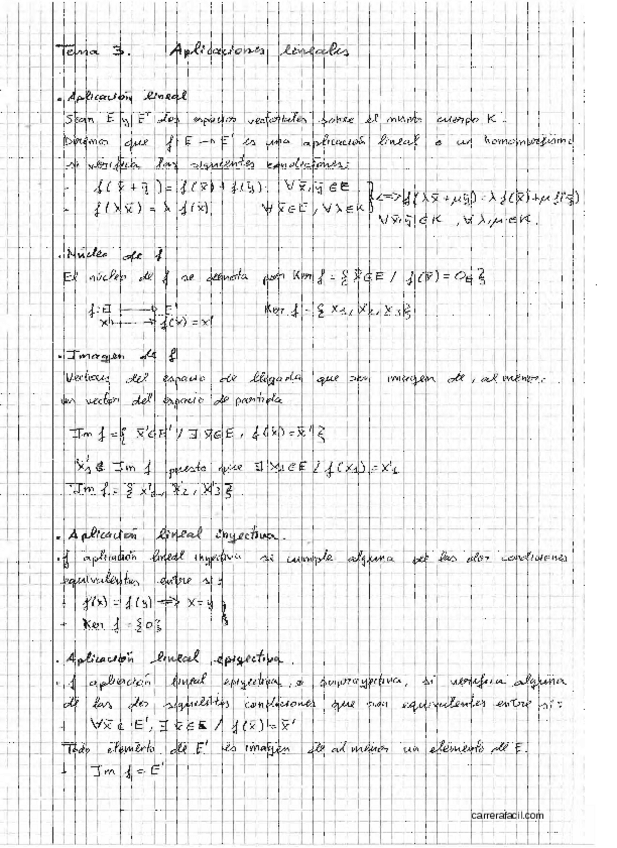 Tema 3. Aplicaciones lineales
· Aplicación lineal
Sean E y E' dos espacios vectoriales sobre el mismo cuerpo K.
Diremos que f: E → E' es una aplicación lineal o un homomorfismo
si verifica las siguientes condiciones:
- f(x̄ + ȳ) = f(x̄) + f(ȳ). ∀x̄, ȳ ∈ E } <=> f(λx̄ + μȳ) = λf(x̄) + μf(ȳ)
- f(λx̄) = λ f(x̄) ∀x̄ ∈ E, ∀λ ∈ K ∀x̄, ȳ ∈ K, ∀λ, μ ∈ K.
· Núcleo de f
El núcleo de f se denota por Ker f = { x̄ ∈ E / f(x̄) = 0
f: E → E' Ker f = { x1, x2, x3 }
x → f(x) = x'
· Imagen de f
Vectores del espacio de llegada que son imagen de, al menos,
un vector del espacio de partida
Im f = { x̄' ∈ E' / ∃ x̄ ∈ E, f(x̄) = x̄' }
x'1 ∈ Im f puesto que ∃ x1 ∈ E / f(x1) = x'1
Im f = { x'1, x'2, x'3 }
· Aplicación lineal inyectiva.
· f aplicación lineal inyectiva si cumple alguna de las dos condiciones
equivalentes entre sí:
+ f(x) = f(y) => x = y }
+ Ker f = {0}
· Aplicación lineal epiyectiva.
· f aplicación lineal epiyectiva, o suprayectiva, si verifica alguna
de las dos siguientes condiciones que son equivalentes entre sí:
+ ∀x̄' ∈ E', ∃ x̄ ∈ E / f(x̄) = x̄'
Todo elemento de E' es imagen de al menos un elemento de E.
+ Im f = E'
carrerafacil.com